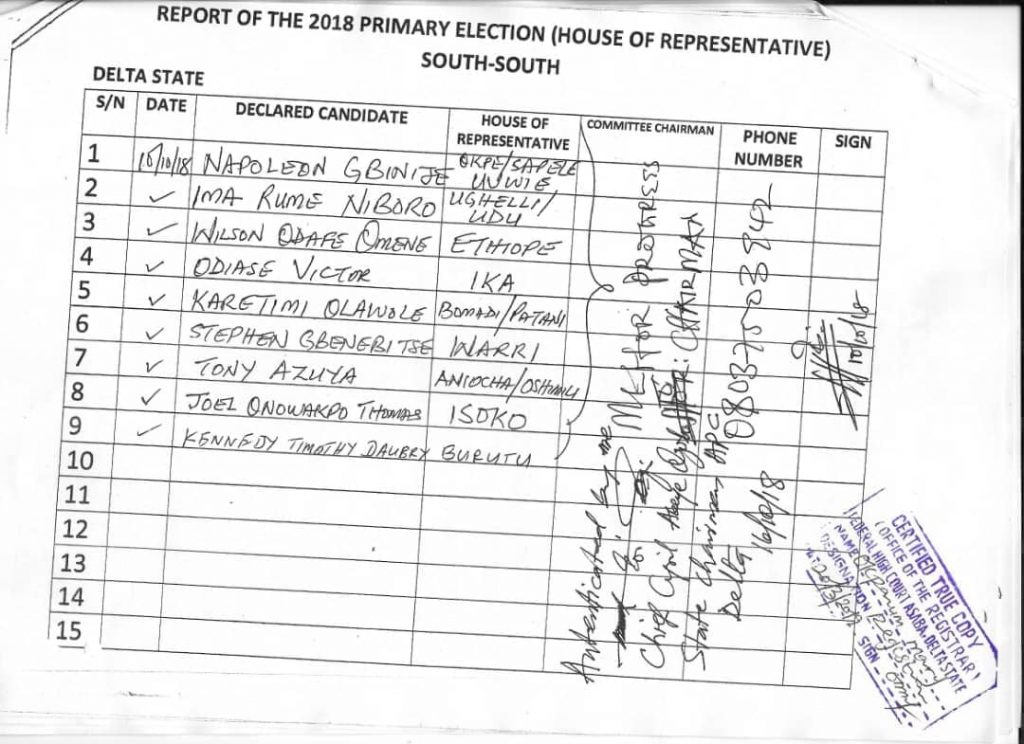 REPORT OF THE 2018 PRIMARY ELECTION (HOUSE OF REPRESENTATIVE)
SOUTH-SOUTH
DELTA STATE
S/N DATE DECLARED CANDIDATE HOUSE OF REPRESENTATIVE COMMITTEE CHAIRMAN PHONE NUMBER SIGN
1 10/10/18 NAPOLEON GBINIJE OKPE/SAPELE UVWIE
2 ✓ IMA RUME NIBORO UGHELLI/ UDU
3 ✓ WILSON ODAFE OMENE ETHIOPE
4 ✓ ODIASE VICTOR IKA
5 ✓ KARETIMI OLAWOLE BOMADI/PATANI
6 ✓ STEPHEN GBENEBITSE WARRI
7 ✓ TONY AZUYA ANIOCHA/OSHIMILI
8 ✓ JOEL ONOWAKPO THOMAS ISOKO
9 ✓ KENNEDY TIMOTHY DAUBRY BURUTU
10
11
12
13
14
15
: CHAIRMAN
10/10/18
Authenticated by me
Chief
State Chairman APC
Delta 16/10/18
CERTIFIED TRUE COPY
(OFFICE OF THE REGISTRAR)
FEDERAL HIGH COURT ASABA, DELTA STATE
NAME
DESIGNATION Registrar
SIGN